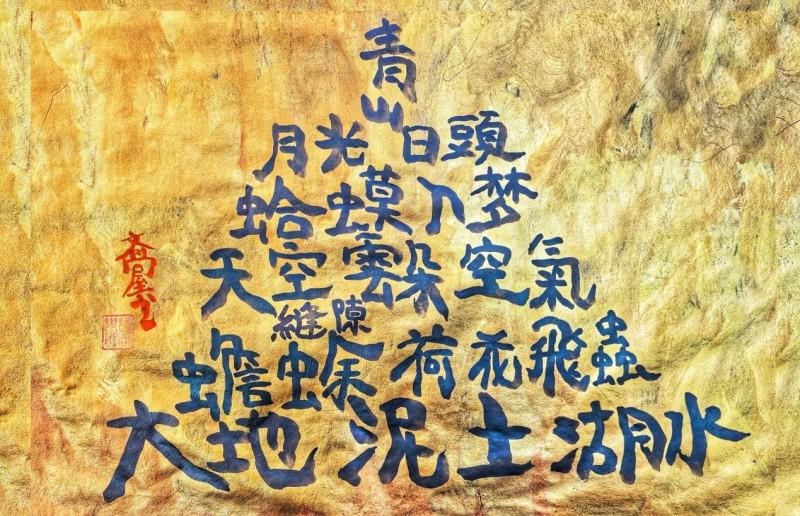 青
山
月光日頭
蛤蟆入梦
天空雲朵空氣
縫隙
蟾蜍荷花飛蟲
大地泥土湖水